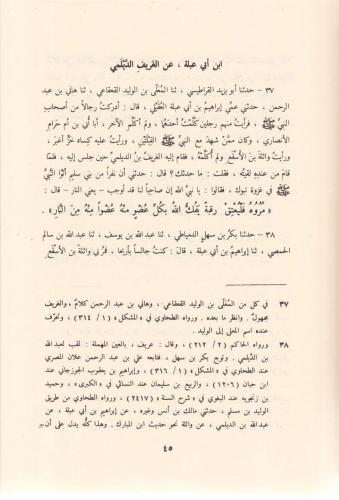 ابن أبي عبلة ، عن الغريف الدَّيلَمي
٣٧ – حدثنا أبو يزيد القراطيسي ، ثنا المُعَلّى بن الوليد القعقاعي ، ثنا هاني بن عبد
الرحمن ، حدثني عمِّي إبراهيمُ بن أبي عبلة العُقَيْلي ، قال : أدركتُ رجالًا من أصحابِ
النبيِّ ﷺ ، فرأيتُ منهم رجلين كَلَّمْتُ أحدَهُما ، ولم أكلِّم الآخر ، أبا أُبي بن أم حرامٍ
الأنصاري ، وكان ممَّنْ شهدَ مع النبيِّ ﷺ القِبْلَتَيْنِ ، ورأيتُ عليه كِساءَ خَزٍّ أغبَرَ ،
ورأيتُ واثلةَ بنَ الأسقعِ ولم أُكَلِّمْهُ ، فقام إليه الغريفُ بنُ الديلميّ حين جلس إليه ، فلما
قامَ من عندِهِ لقيتُه ، فقلتُ : ما حدثتك ؟ قال : حدثني أن نفرًا من بني سليم أتَوُا النَّبيَّ
ﷺ في غزوة تبوك ، فقالوا : يا نبيَّ الله إن صاحباً لنا قد أوجب – يعني النار – قال :
« مُرُوهُ فَلْيُعْتِقْ رقبةً يَفُكُّ اللهُ بكُلِّ عُضْوٍ منْهُ عُضْواً مِنْهُ مِنَ النَّارِ » .
٣٨ – حدثنا بكرُ بن سهلٍ الدمياطي ، ثنا عبد الله بن يوسف ، ثنا عبد الله بن سالم
الحمصي ، ثنا إبراهيمُ بن أبي عبلة ، قال : كنتُ جالساً بأريحا . فمرَّ بي واثلةُ بن الأسْقعِ
٣٧ في كل من المُعَلّى بن الوليد القعقاعي ، وهاني بن عبد الرحمن كلامٌ ، والغريف
مجهولٌ . وانظر ما بعده . ورواه الطحاوي في « المشكل » ( ١ / ٣١٤ ) ، وتحرّف
عنده اسم المعلى إلى الوليد .
٣٨ ورواه الحاكم ( ٢ / ٢١٢ ) ، وقال : عريف ، بالعين المهملة : لقب لعبد الله
بن الدَّيلمي . وتوبع بكر بن سهل ، فتابعه علي بن عبد الرحمن علان المصري
عند الطحاوي في « المشكل » ( ١ / ٣١٦ ) ، وإبراهيم بن يعقوب الجوزجاني عند
ابن حبان ( ١٢٠٦ ) ، والربيع بن سليمان عند النسائي في « الكبرى » ، وحميد
بن زنجويه عند البغوي في « شرح السنة » ( ٢٤١٧ ) ، ورواه الطحاوي من طريق
الوليد بن مسلم ، حدثني مالك بن أنس وغيره ، عن إبراهيم بن أبي عبلة ، عن
عبد الله بن الديلمي ، عن واثلة نحو حديث ابن المبارك . وهذا كلُّه يدل على أن
٤٥